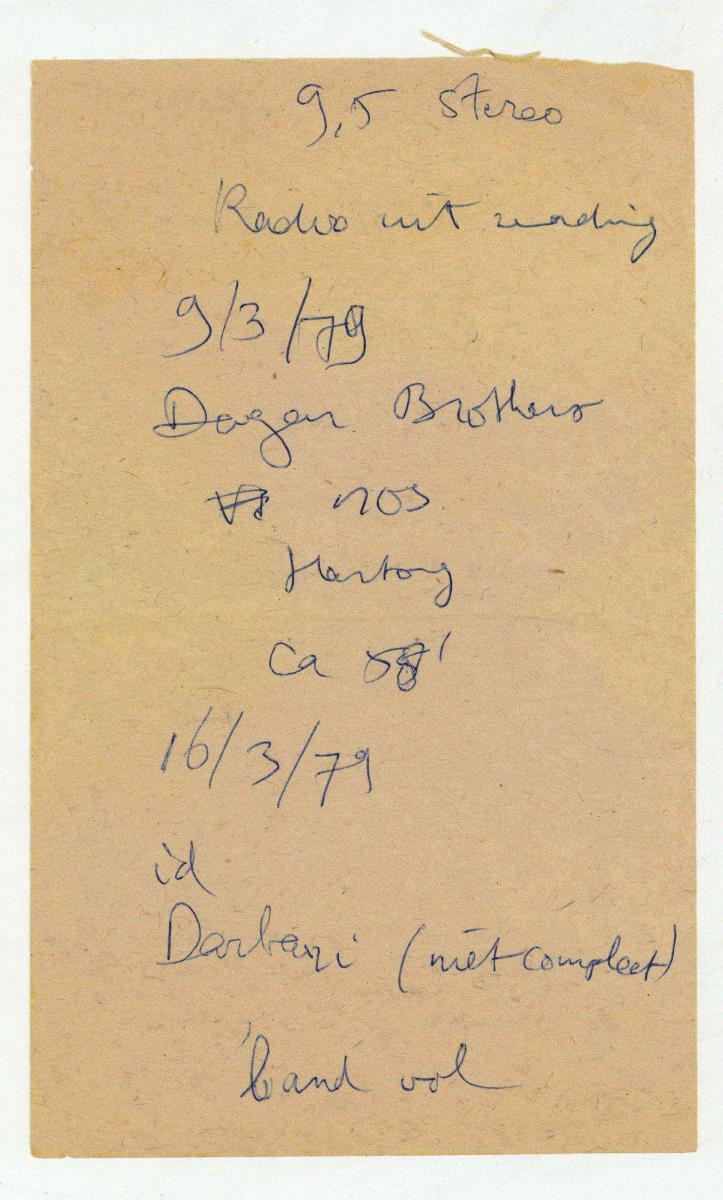 9,5 stereo
Radio uit zending
9/3/79
Dagar Brothers
nos
Hartong
ca 58'
16/3/79
id
Darbari (niet compleet)
band vol